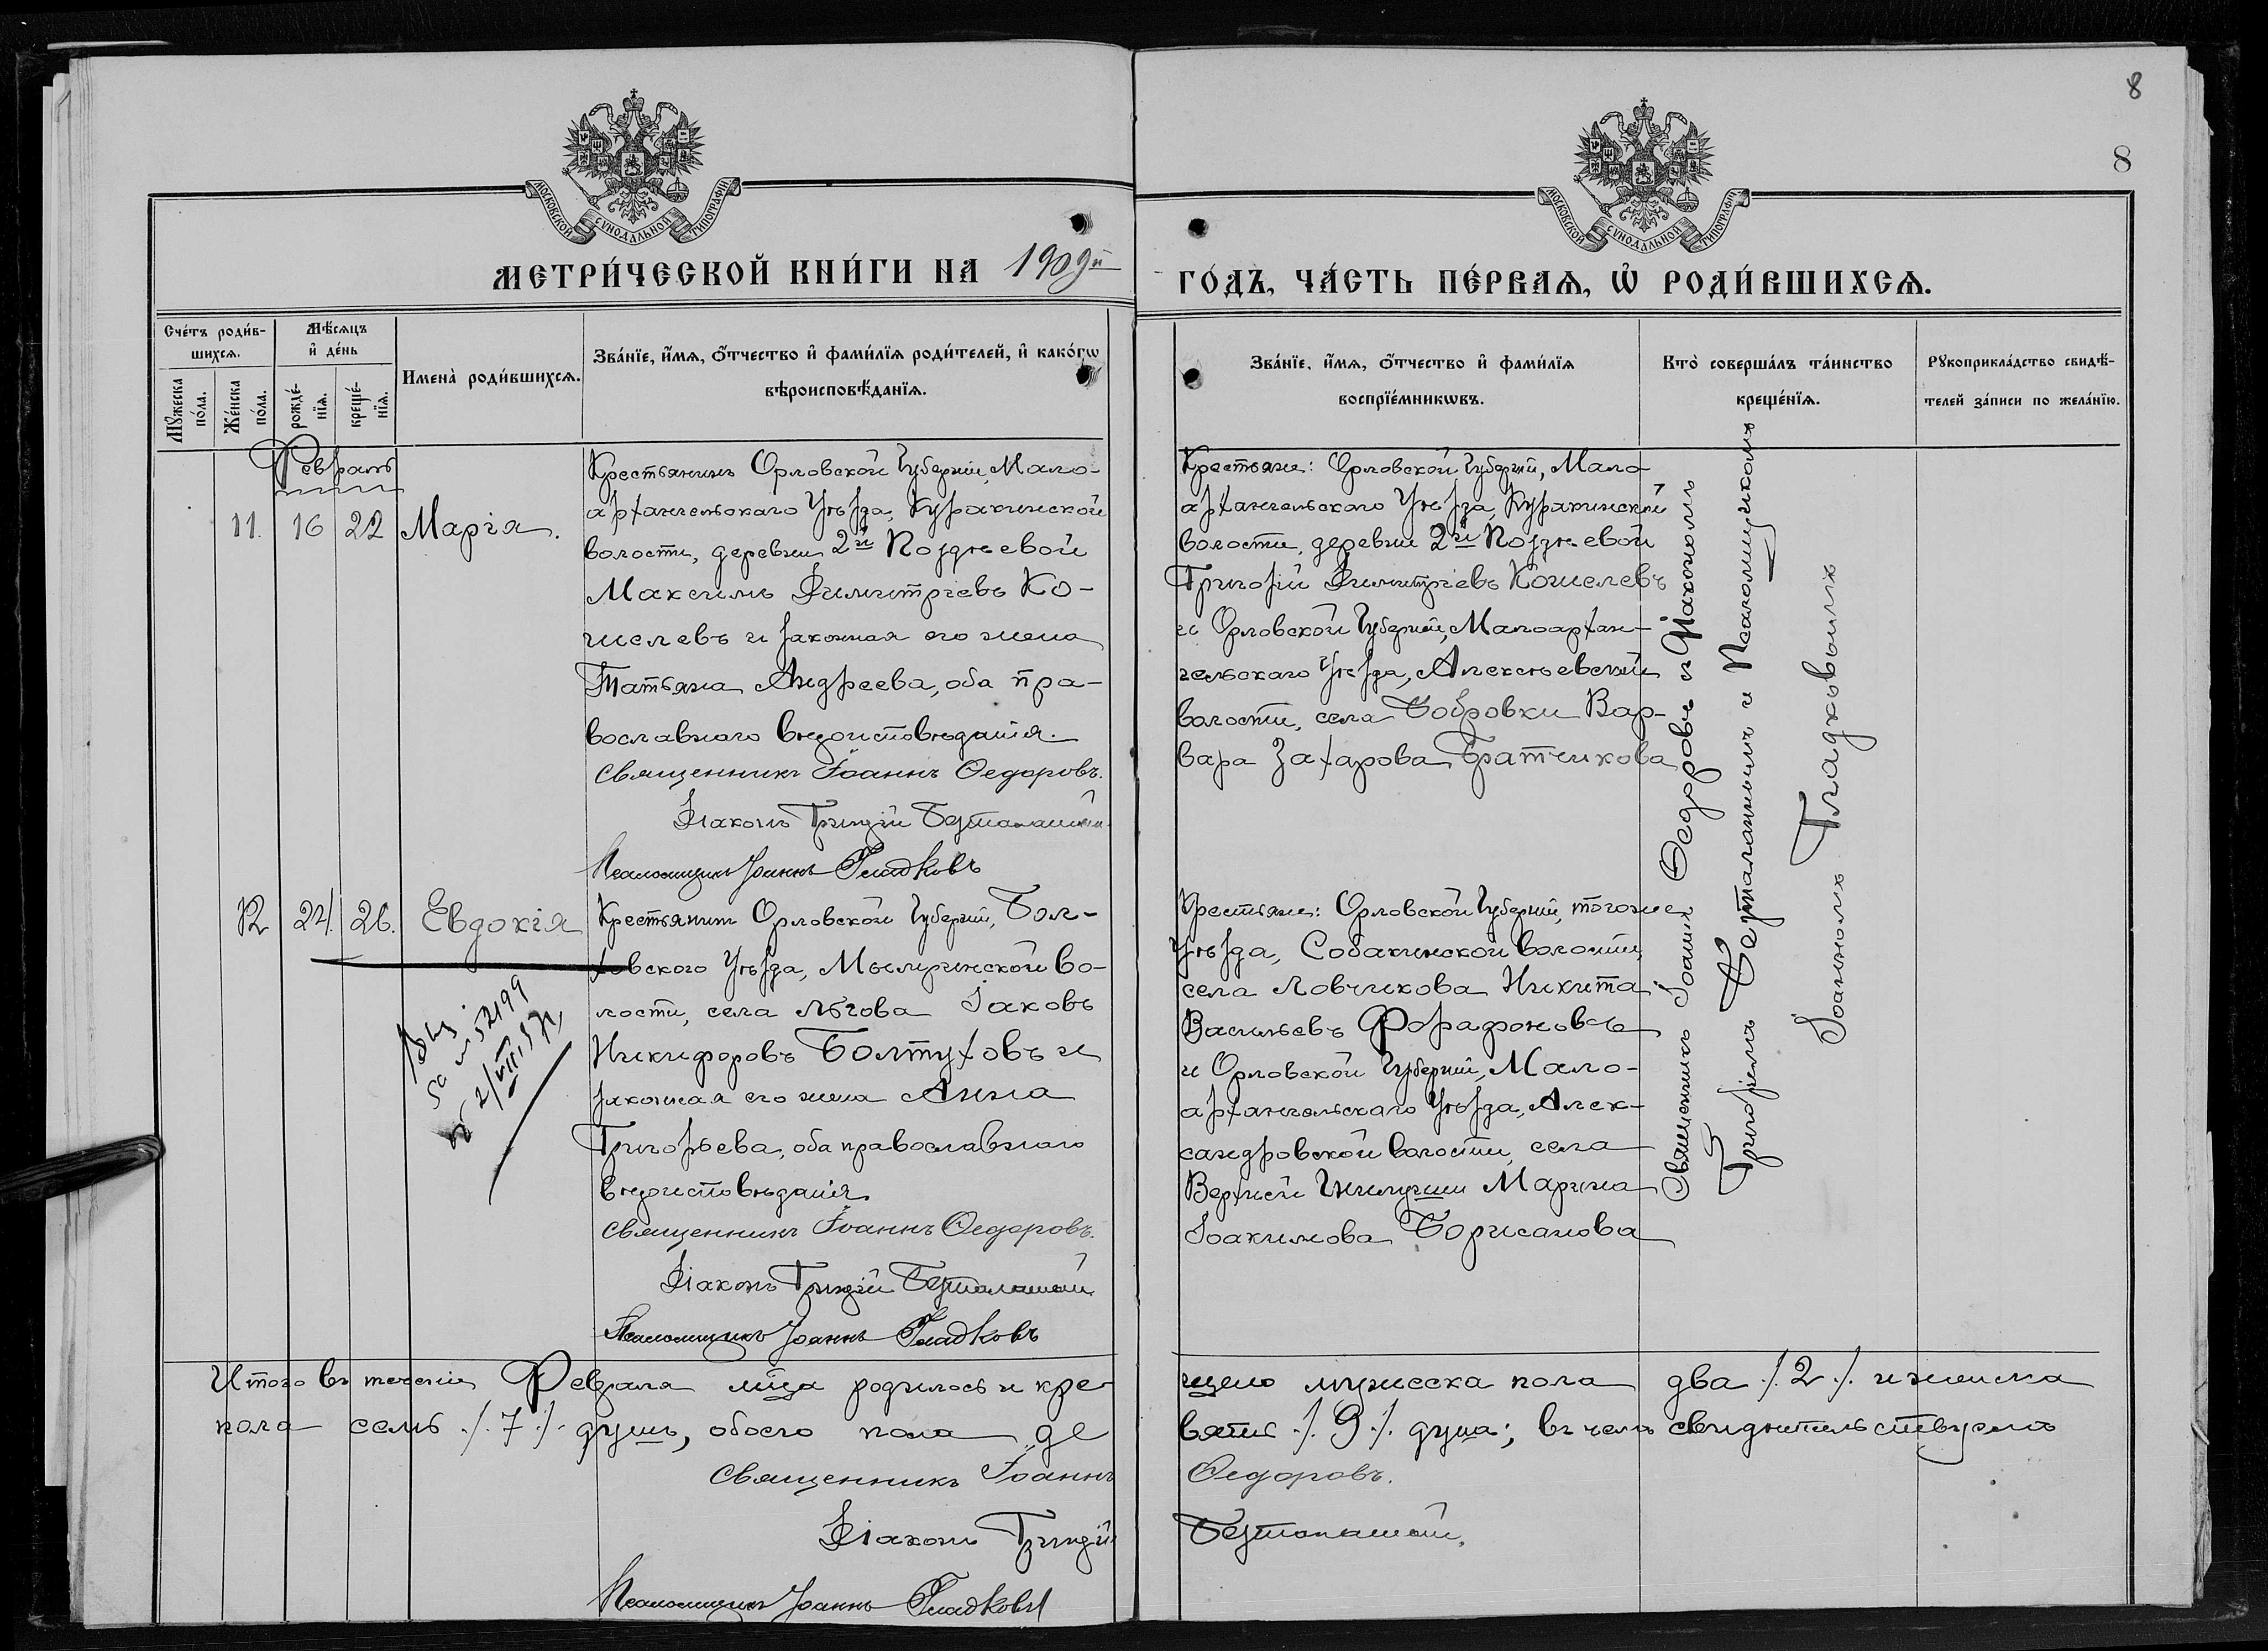 8
8
МОСКОВСКОЙ СѴНОДАЛЬНОЙ ТИПОГРАФІИ.
МОСКОВСКОЙ СѴНОДАЛЬНОЙ ТИПОГРАФІИ.
МЕТРИ́ЧЕСКОЙ КНИ́ГИ НА 1909й
ГО́ДЪ, ЧА́СТЬ ПЕ́РВАѦ, Ѡ҆ РОДИ́ВШИХСѦ.
Сче́тъ роди́в-
шихсѧ.
Мѣ́сѧцъ
и҆ де́нь
Мꙋ́жеска
по́ла.
Же́нска
по́ла.
рожде́-
нїѧ.
креще́-
нїѧ.
Имена̀ роди́вшихсѧ.
Зва́нїе, и҆́мѧ, ѻ҆́тчество и҆ фами́лїѧ роди́телей, и҆ како́гѡ
вѣроисповѣ́данїѧ.
Зва́нїе, и҆́мѧ, ѻ҆́тчество и҆ фами́лїѧ
воспрїе́мникѡвъ.
Кто̀ соверша́лъ та́инство
креще́нїѧ.
Рꙋкоприкла́дство свидѣ́-
телей за́писи по жела́нїю.
Февраль
11. 16 22 Марія.
Крестьянинъ Орловской Губерніи, Мало-
архангельскаго Уѣзда, Куракинской
волости, деревни 2й Позднѣевой
Максимъ Димитріевъ Ко-
шелевъ и законная его жена
Татьяна Андреева, оба пра-
вославнаго вѣроисповѣданія.
Священникъ Іоаннъ Ѳедоровъ.
Діаконъ Григорій
Псаломщикъ Іоаннъ Гладковъ
Крестьяне: Орловской Губерніи, Мало-
архангельскаго Уѣзда, Куракинской
волости, деревни 2й Позднѣевой
Григорій Димитріевъ Кошелевъ
и Орловской Губерніи, Малоархан-
гельскаго Уѣзда, Алексѣевской
волости, села Бобровки Вар-
вара Захарова Братчикова
Священникъ Іоаннъ Ѳедоровъ съ Діакономъ
Григоріемъ и Псаломщикомъ
Іоанномъ Гладковымъ
12 24. 26. Евдокія
Крестьянинъ Орловской Губерніи, Бол-
ховского Уѣзда, во-
лости, села Льгова Іаковъ
Никифоровъ Болтуховъ и
законная его жена Анна
Григорьева, оба православнаго
вѣроисповѣданія.
Священникъ Іоаннъ Ѳедоровъ.
Діаконъ Григорій
Псаломщикъ Іоаннъ Гладковъ
52199
2/VIII
Крестьяне: Орловской Губерніи, тогоже
Уѣзда, Собакинской волости,
села Ловчикова Никита
Васильевъ Форафоновъ
и Орловской Губерніи, Мало-
архангельскаго Уѣзда, Алек-
сандровской волости, села
Верхней Гнилуши Марина
Іоакимова Борисанова
Итого въ теченіи Февраля мѣца родилось и кре-
щено мужеска пола два /.2./. и женска
пола семь ./.7./. душъ, обоего пола де
вять ./.9./. душъ; въ чемъ свидѣтельствуемъ
Священникъ Іоаннъ Ѳедоровъ.
Діаконъ Григорій
Псаломщикъ Іоаннъ Гладковъ